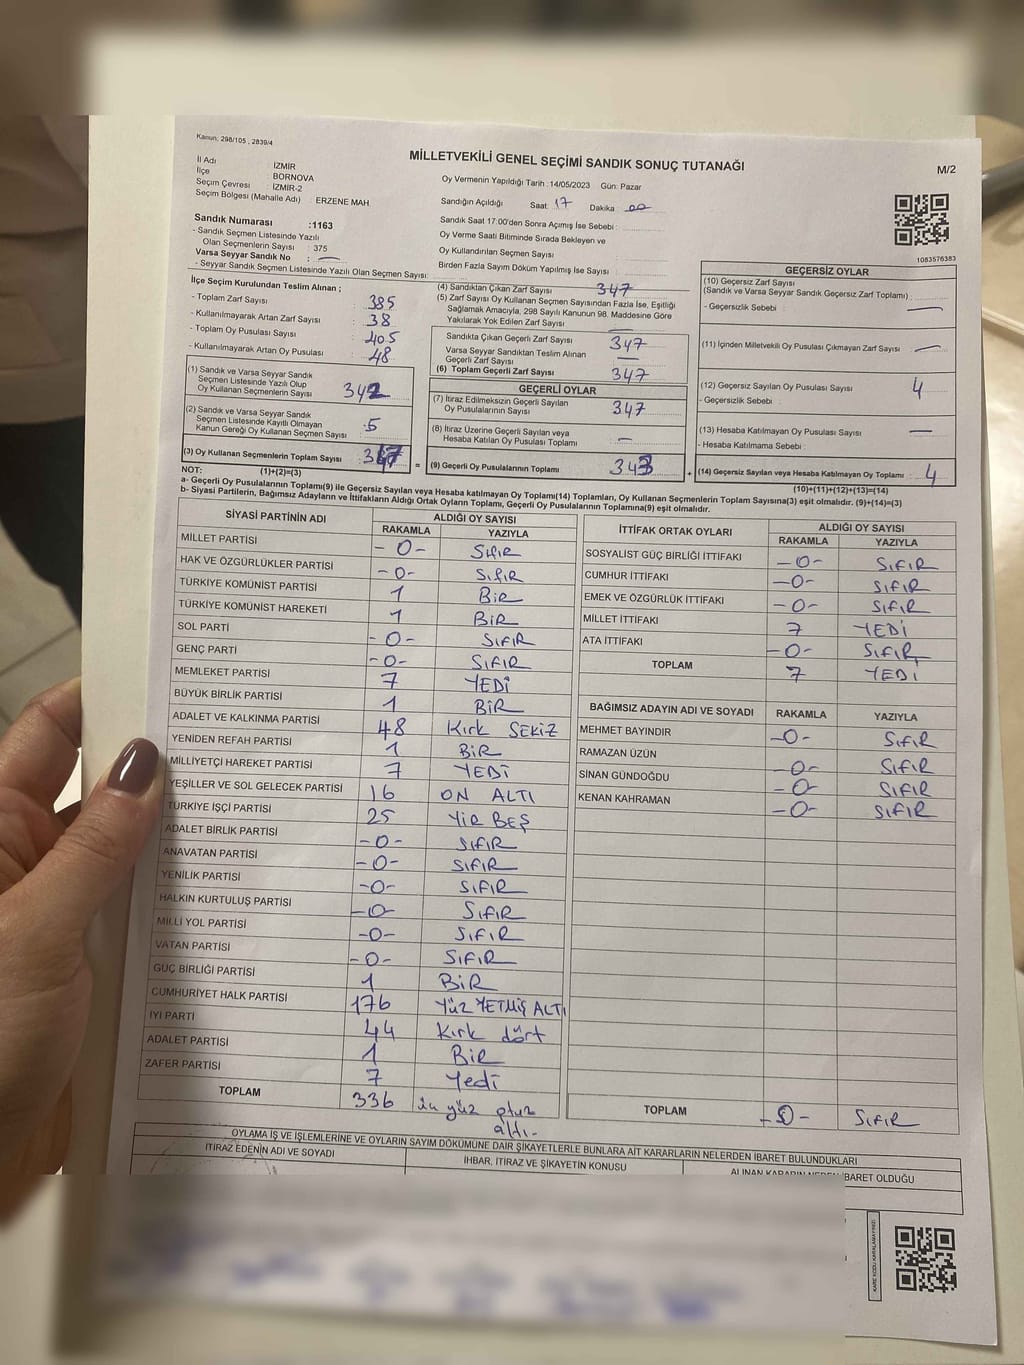 Kanun; 298/105 , 2839/4
MİLLETVEKİLİ GENEL SEÇİMİ SANDIK SONUÇ TUTANAĞI
M/2
İl Adı : İZMİR
İlçe : BORNOVA
Seçim Çevresi : İZMİR-2
Seçim Bölgesi (Mahalle Adı) : ERZENE MAH
Sandık Numarası :1163
- Sandık Seçmen Listesinde Yazılı
Olan Seçmenlerin Sayısı : 375
Varsa Seyyar Sandık No : —
- Seyyar Sandık Seçmen Listesinde Yazılı Olan Seçmen Sayısı:
Oy Vermenin Yapıldığı Tarih :14/05/2023 Gün: Pazar
Sandığın Açıldığı Saat 17 Dakika 00
Sandık Saat 17:00'den Sonra Açımış İse Sebebi :
Oy Verme Saati Bitiminde Sırada Bekleyen ve
Oy Kullandırılan Seçmen Sayısı :
Birden Fazla Sayım Döküm Yapılmış İse Sayısı :
1083576383
İlçe Seçim Kurulundan Teslim Alınan ;
- Toplam Zarf Sayısı : 385
- Kullanılmayarak Artan Zarf Sayısı : 38
- Toplam Oy Pusulası Sayısı : 405
- Kullanılmayarak Artan Oy Pusulası : 48
(1) Sandık ve Varsa Seyyar Sandık
Seçmen Listesinde Yazılı Olup
Oy Kullanan Seçmenlerin Sayısı : 342
(2) Sandık ve Varsa Seyyar Sandık
Seçmen Listesinde Kayıtlı Olmayan
Kanun Gereği Oy Kullanan Seçmen Sayısı : 5
(3) Oy Kullanan Seçmenlerin Toplam Sayısı : 347
(1)+(2)=(3)
(4) Sandıktan Çıkan Zarf Sayısı : 347
(5) Zarf Sayısı Oy Kullanan Seçmen Sayısından Fazla İse, Eşitliği
Sağlamak Amacıyla, 298 Sayılı Kanunun 98. Maddesine Göre
Yakılarak Yok Edilen Zarf Sayısı : —
Sandıkta Çıkan Geçerli Zarf Sayısı : 347
Varsa Seyyar Sandıktan Teslim Alınan
Geçerli Zarf Sayısı : —
(6) Toplam Geçerli Zarf Sayısı : 347
GEÇERLİ OYLAR
(7) İtiraz Edilmeksizin Geçerli Sayılan
Oy Pusulalarının Sayısı : 347
(8) İtiraz Üzerine Geçerli Sayılan veya
Hesaba Katılan Oy Pusulası Toplamı : —
= (9) Geçerli Oy Pusulalarının Toplamı : 343 +
GEÇERSİZ OYLAR
(10) Geçersiz Zarf Sayısı
(Sandık ve Varsa Seyyar Sandık Geçersiz Zarf Toplamı) :
- Geçersizlik Sebebi : —
(11) İçinden Milletvekili Oy Pusulası Çıkmayan Zarf Sayısı : —
(12) Geçersiz Sayılan Oy Pusulası Sayısı : 4
- Geçersizlik Sebebi :
(13) Hesaba Katılmayan Oy Pusulası Sayısı : —
- Hesaba Katılmama Sebebi :
(14) Geçersiz Sayılan veya Hesaba Katılmayan Oy Toplamı : 4
(10)+(11)+(12)+(13)=(14)
NOT:
a- Geçerli Oy Pusulalarının Toplamı(9) ile Geçersiz Sayılan veya Hesaba katılmayan Oy Toplamı(14) Toplamları, Oy Kullanan Seçmenlerin Toplam Sayısına(3) eşit olmalıdır. (9)+(14)=(3)
b- Siyasi Partilerin, Bağımsız Adayların ve İttifakların Aldığı Ortak Oyların Toplamı, Geçerli Oy Pusulalarının Toplamına(9) eşit olmalıdır.
SİYASİ PARTİNİN ADI ALDIĞI OY SAYISI
RAKAMLA YAZIYLA
MİLLET PARTİSİ -0- Sıfır
HAK VE ÖZGÜRLÜKLER PARTİSİ -0- Sıfır
TÜRKİYE KOMÜNİST PARTİSİ 1 BİR
TÜRKİYE KOMÜNİST HAREKETİ 1 BİR
SOL PARTİ -0- SIFIR
GENÇ PARTİ -0- SIFIR
MEMLEKET PARTİSİ 7 YEDİ
BÜYÜK BİRLİK PARTİSİ 1 BİR
ADALET VE KALKINMA PARTİSİ 48 Kırk SEKİZ
YENİDEN REFAH PARTİSİ 1 BİR
MİLLİYETÇİ HAREKET PARTİSİ 7 YEDİ
YEŞİLLER VE SOL GELECEK PARTİSİ 16 ON ALTI
TÜRKİYE İŞÇİ PARTİSİ 25 YİR BEŞ
ADALET BİRLİK PARTİSİ -0- SIFIR
ANAVATAN PARTİSİ -0- SIFIR
YENİLİK PARTİSİ -0- SIFIR
HALKIN KURTULUŞ PARTİSİ -0- SIFIR
MİLLİ YOL PARTİSİ -0- SIFIR
VATAN PARTİSİ -0- SIFIR
GÜÇ BİRLİĞİ PARTİSİ 1 BİR
CUMHURİYET HALK PARTİSİ 176 YÜZ YETMİŞ ALTI
İYİ PARTİ 44 Kırk dört
ADALET PARTİSİ 1 BİR
ZAFER PARTİSİ 7 Yedi
TOPLAM 336 yüz otuz
altı-
İTTİFAK ORTAK OYLARI ALDIĞI OY SAYISI
RAKAMLA YAZIYLA
SOSYALİST GÜÇ BİRLİĞİ İTTİFAKI -0- SIFIR
CUMHUR İTTİFAKI -0- SIFIR
EMEK VE ÖZGÜRLÜK İTTİFAKI -0- SIFIR
MİLLET İTTİFAKI 7 YEDİ
ATA İTTİFAKI -0- SIFIR
TOPLAM 7 YEDİ
BAĞIMSIZ ADAYIN ADI VE SOYADI RAKAMLA YAZIYLA
MEHMET BAYINDIR -0- SIFIR
RAMAZAN ÜZÜN -0- SIFIR
SİNAN GÜNDOĞDU -0- SIFIR
KENAN KAHRAMAN -0- SIFIR
TOPLAM -0- SIFIR
OYLAMA İŞ VE İŞLEMLERİNE VE OYLARIN SAYIM DÖKÜMÜNE DAİR ŞİKAYETLERLE BUNLARA AİT KARARLARIN NELERDEN İBARET BULUNDUKLARI
İTİRAZ EDENİN ADI VE SOYADI İHBAR, İTİRAZ VE ŞİKAYETİN KONUSU ALINAN KARARIN NEDEN İBARET OLDUĞU
KARE KODU KARALAMAYINIZ!